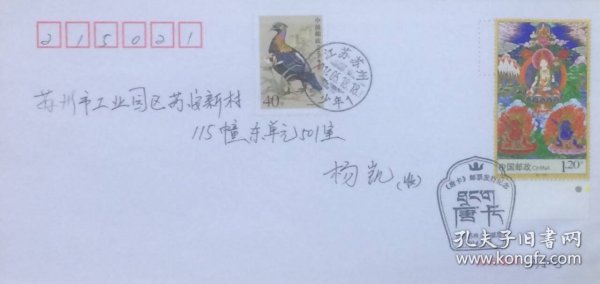 215021
中国邮政
40分
江苏苏州
少年
苏州市工业园区苏安新村
115幢东单元501室
杨凯(收)
中国邮政 CHINA
1.20元
《唐卡》邮票发行纪念
唐卡
孔夫子旧书网
www.kongfz.com